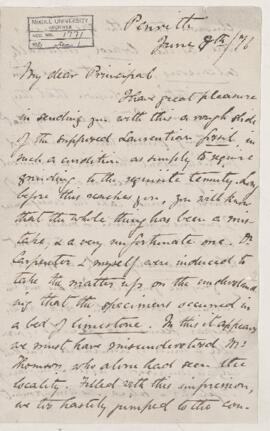 McGILL UNIVERSITY
ARCHIVES
ACC. NO. 1771
REF.
Penrith
June 9th/76
My dear Principal
I have great pleasure
in sending you with this a rough slide
of the supposed Laurentian fossil in
such a condition as simply to require
grinding to the requisite tenuity. Long
before this reaches you, you will know
that the whole thing has been a mis-
take, & a very unfortunate one. Dr.
Carpenter & myself were induced to
take the matter up on the understand-
ing that the specimens occurred in
a bed of limestone. In this it appears
we must have misunderstood Mr
Thomson, who alone had seen the
locality. Filled with this impression,
we too hastily jumped to the con-